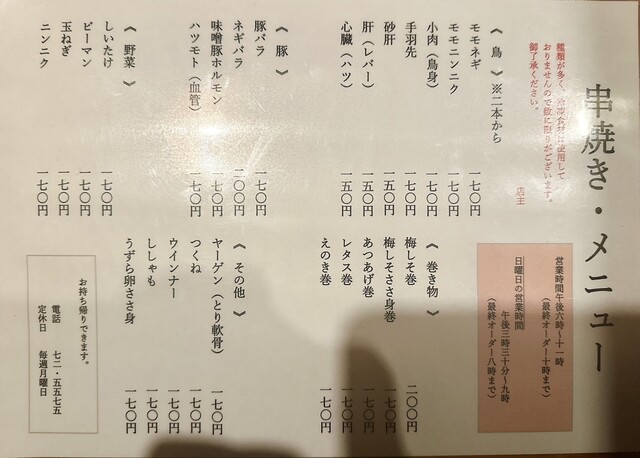 串焼き・メニュー
種類が多く、冷凍食材は使用して
おりませんので数に限りがございます。
御了承ください。
店主
営業時間午後六時〜十一時
（最終オーダー十時まで）
日曜日の営業時間
午後三時三十分〜九時
（最終オーダー八時まで）
《 鳥 》※二本から
モモネギ 一七〇円
モモニンニク 一七〇円
小肉（鳥身） 一七〇円
手羽先 一七〇円
砂肝 一五〇円
肝（レバー） 一五〇円
心臓（ハツ） 一五〇円
《 豚 》
豚バラ 一七〇円
ネギバラ 二〇〇円
味噌豚ホルモン 一七〇円
ハツモト（血管） 一七〇円
《 野菜 》
しいたけ 一七〇円
ピーマン 一七〇円
玉ねぎ 一七〇円
ニンニク 一七〇円
《 巻き物 》
梅しそ巻 二〇〇円
梅しそささ身巻 一七〇円
あつあげ巻 一七〇円
レタス巻 一七〇円
えのき巻 一七〇円
《 その他 》
ヤーゲン（とり軟骨） 一七〇円
つくね 一七〇円
ウインナー 一七〇円
ししゃも 一七〇円
うずら卵ささ身 一七〇円
お持ち帰りできます。
電話 七二・五五七五
定休日 毎週月曜日